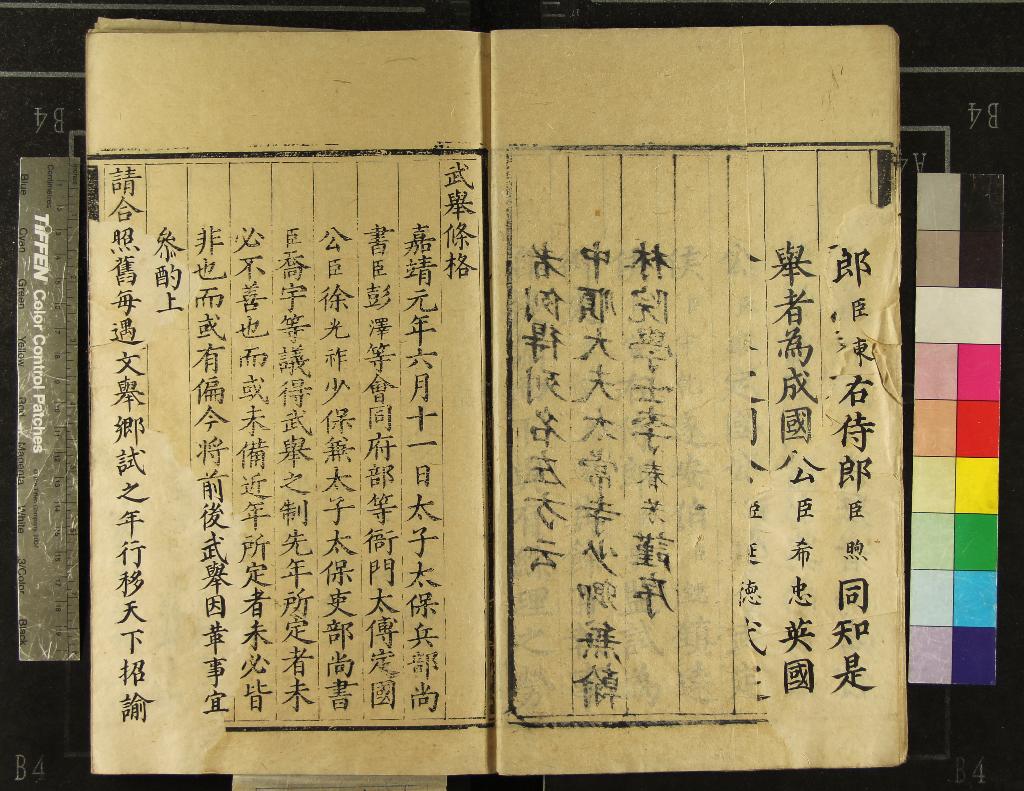 郎臣東右侍郎臣煦同知是
舉者為成國公臣希忠英國
德武
者例得列名左方云
中順大夫太常寺少卿兼翰
林院學士李春芳謹序
武舉條格
嘉靖元年六月十一日太子太保兵部尚
書臣彭澤等會同府部等衙門太傅定國
公臣徐光祚少保兼太子太保吏部尚書
臣喬宇等議得武舉之制先年所定者未
必不善也而或未備近年所定者未必皆
非也而或有偏今將前後武舉因革事宜
叅酌上
請合照舊每遇文舉鄉試之年行移天下招諭
TIFFEN Color Control Patches
Centimetres
Blue
Cyan
Green
Yellow
Red
Magenta
White
3/Color
Black
B4
B4
A4
B4
B4